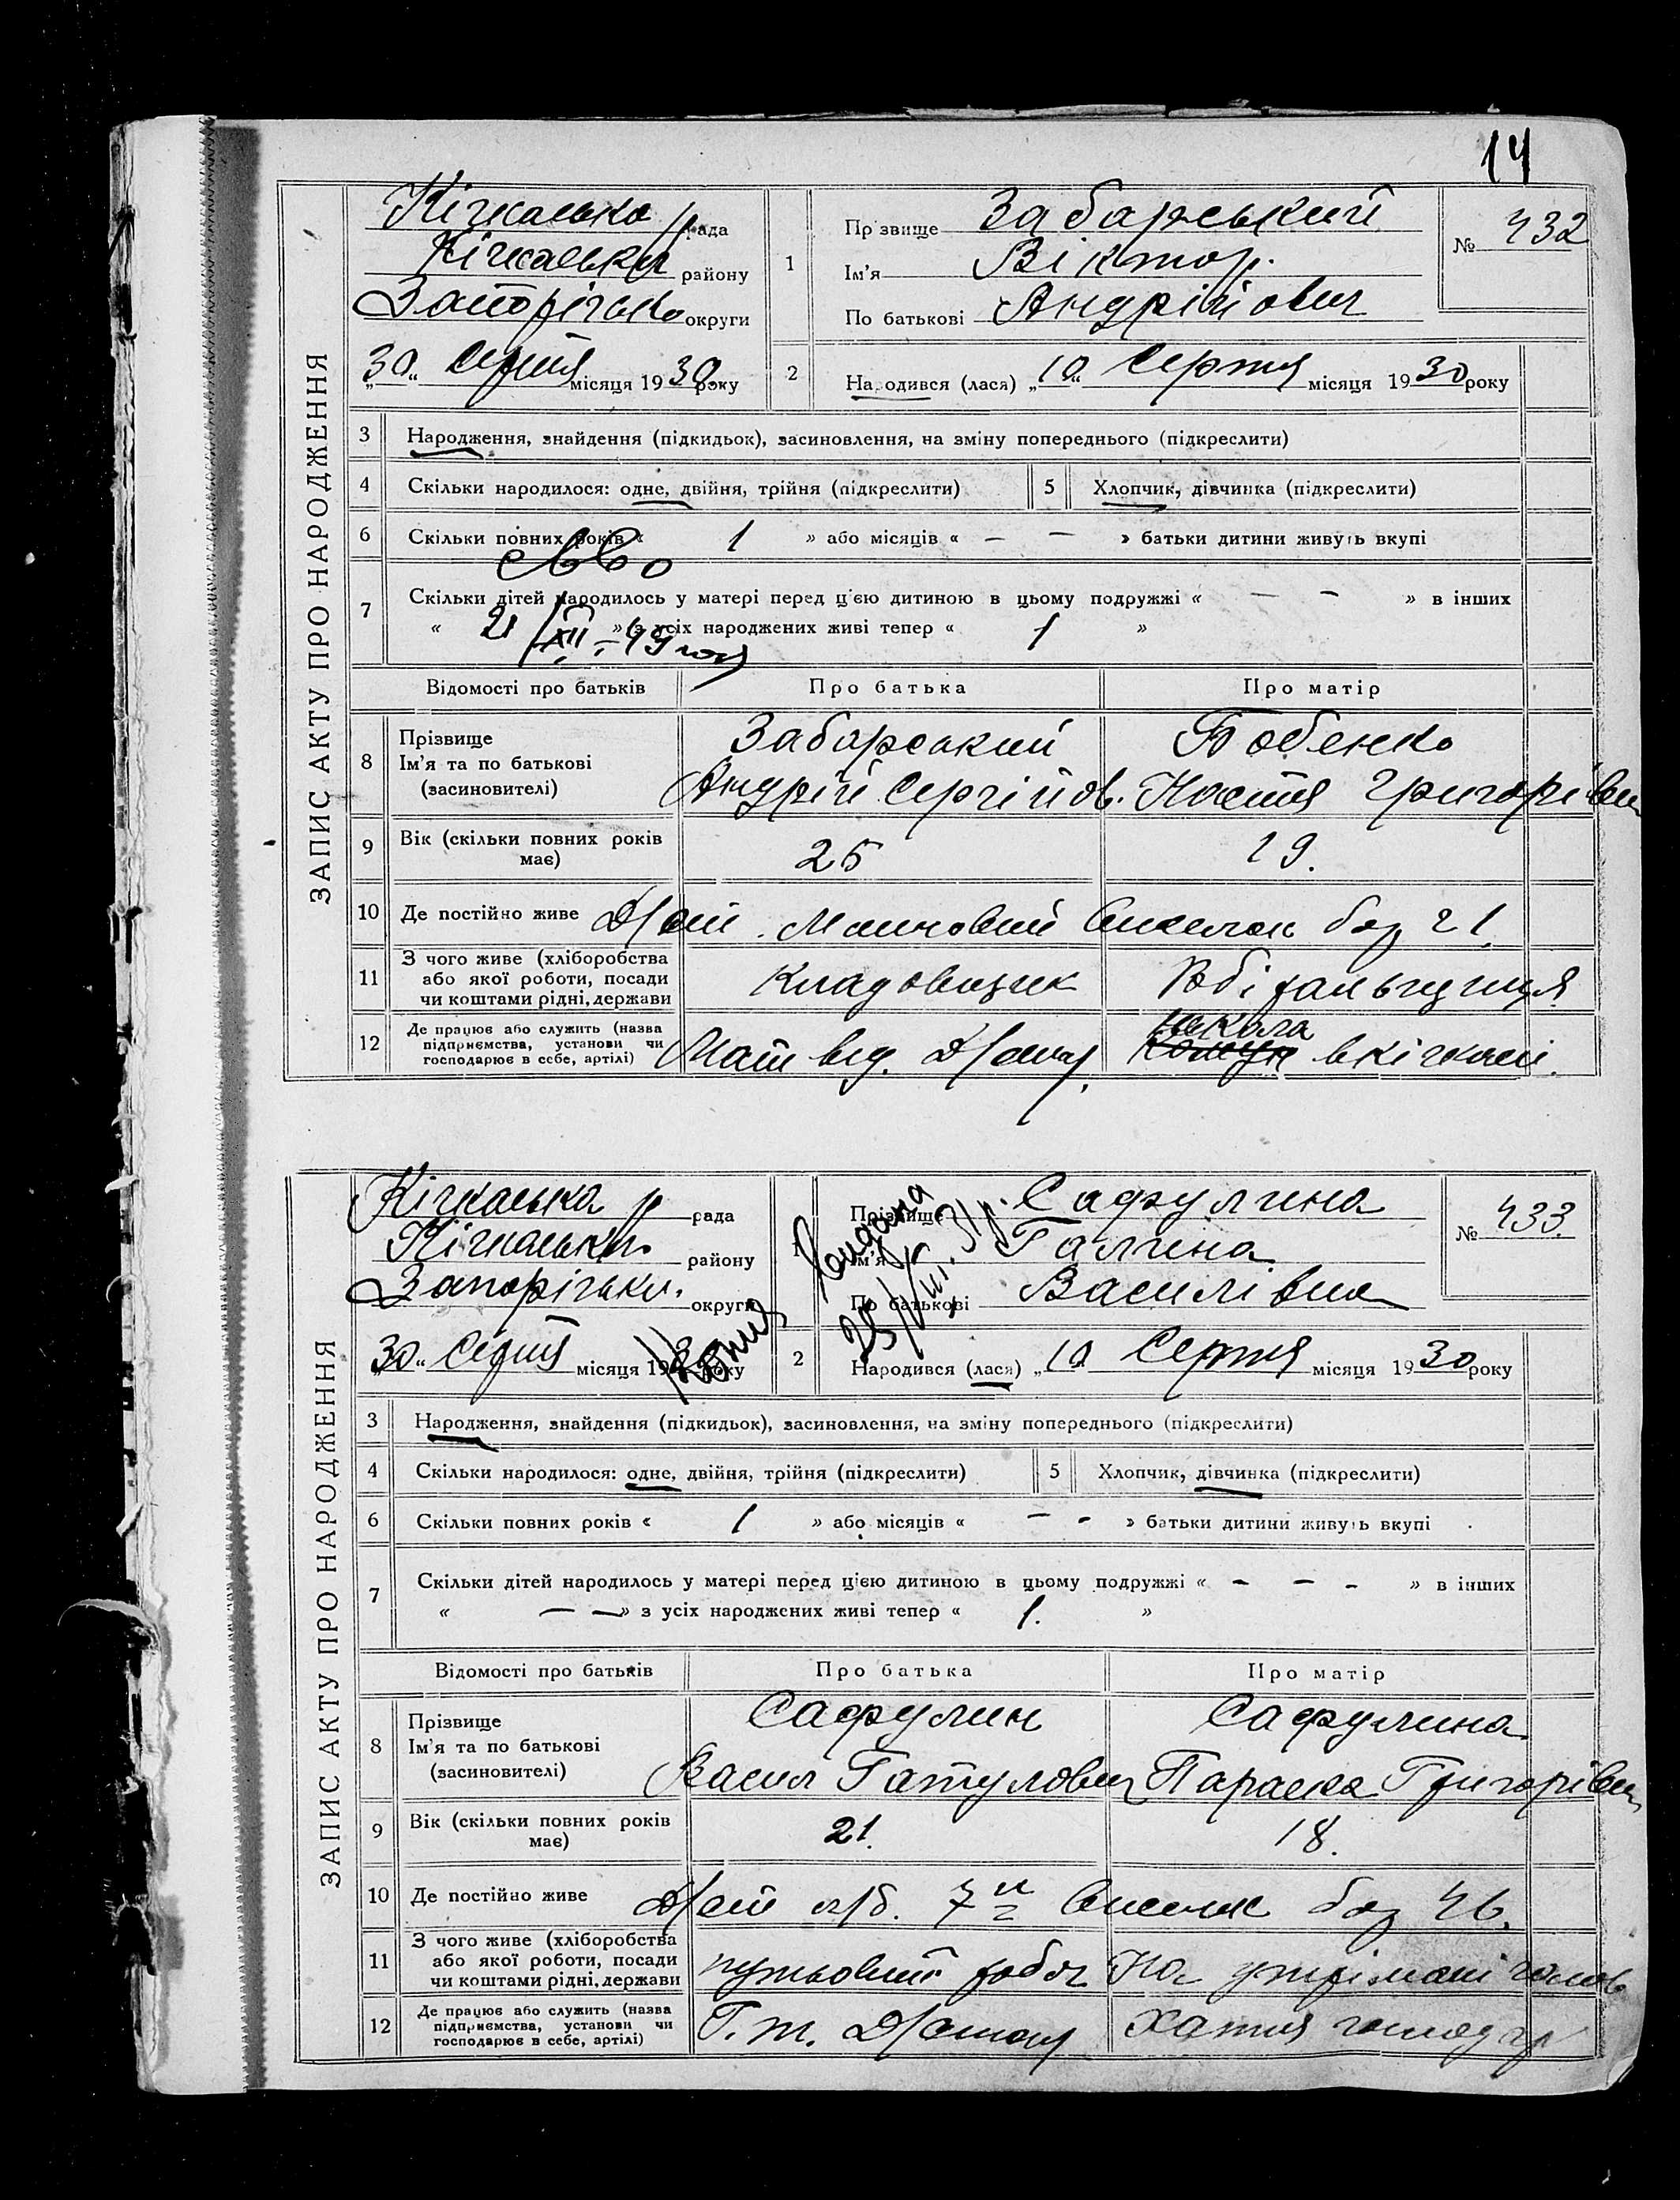 14
ЗАПИС АКТУ ПРО НАРОДЖЕННЯ
Кічкаська рада
Кічкаськ району
Запорізько округи
„30" Серпня місяця 1930 року
1 Прізвище Забарський
Ім'я Віктор.
По батькові Андрійович
№ 432
2 Народився (лася) „10" Серпня місяця 1930 року
3 Народження, знайдення (підкидьок), засиновлення, на зміну попереднього (підкреслити)
4 Скільки народилося: одне, двійня, трійня (підкреслити) 5 Хлопчик, дівчинка (підкреслити)
6 Скільки повних років « 1 » або місяців « — — » батьки дитини живуть вкупі
7 Скільки дітей народилось у матері перед цією дитиною в цьому подружжі « — - » в інших
« » з усіх народжених живі тепер « 1 »
21/XII-49 года
Відомості про батьків Про батька Про матір
8 Прізвище Забарський Бобенко
Ім'я та по батькові Андрій Сергійов. Настя Григорівн
(засиновителі)
9 Вік (скільки повних років має) 25 19.
10 Де постійно живе виселок 21
11 З чого живе (хліборобства або якої роботи, посади чи коштами рідні, держави Кладовщик
12 Де працює або служить (назва підприємства, установи чи господарює в себе, артілі) Мат від. школа в Кічкасі.
ЗАПИС АКТУ ПРО НАРОДЖЕННЯ
Кічкаська р рада
Кічкаськ району
Запорізьк. округи
„30" Серпня місяця 19 року
1 Прізвище Сафулина
Ім'я Галина
По батькові Василівна
№ 433.
Видана
Копия
2 Народився (лася) „10 Серпня місяця 1930 року
3 Народження, знайдення (підкидьок), засиновлення, на зміну попереднього (підкреслити)
4 Скільки народилося: одне, двійня, трійня (підкреслити) 5 Хлопчик, дівчинка (підкреслити)
6 Скільки повних років « 1 » або місяців « — - » батьки дитини живуть вкупі
7 Скільки дітей народилось у матері перед цією дитиною в цьому подружжі « — — - » в інших
« — — » з усіх народжених живі тепер « 1. »
Відомості про батьків Про батька Про матір
8 Прізвище Сафулин Сафулина
Ім'я та по батькові Васил Гатулович Параска Григорівн
(засиновителі)
9 Вік (скільки повних років має) 21. 18.
10 Де постійно живе 7 виселок 46.
11 З чого живе (хліборобства або якої роботи, посади чи коштами рідні, держави путьовий робоч На утрімані чолов
12 Де працює або служить (назва підприємства, установи чи господарює в себе, артілі) Г. т. Хатня господар